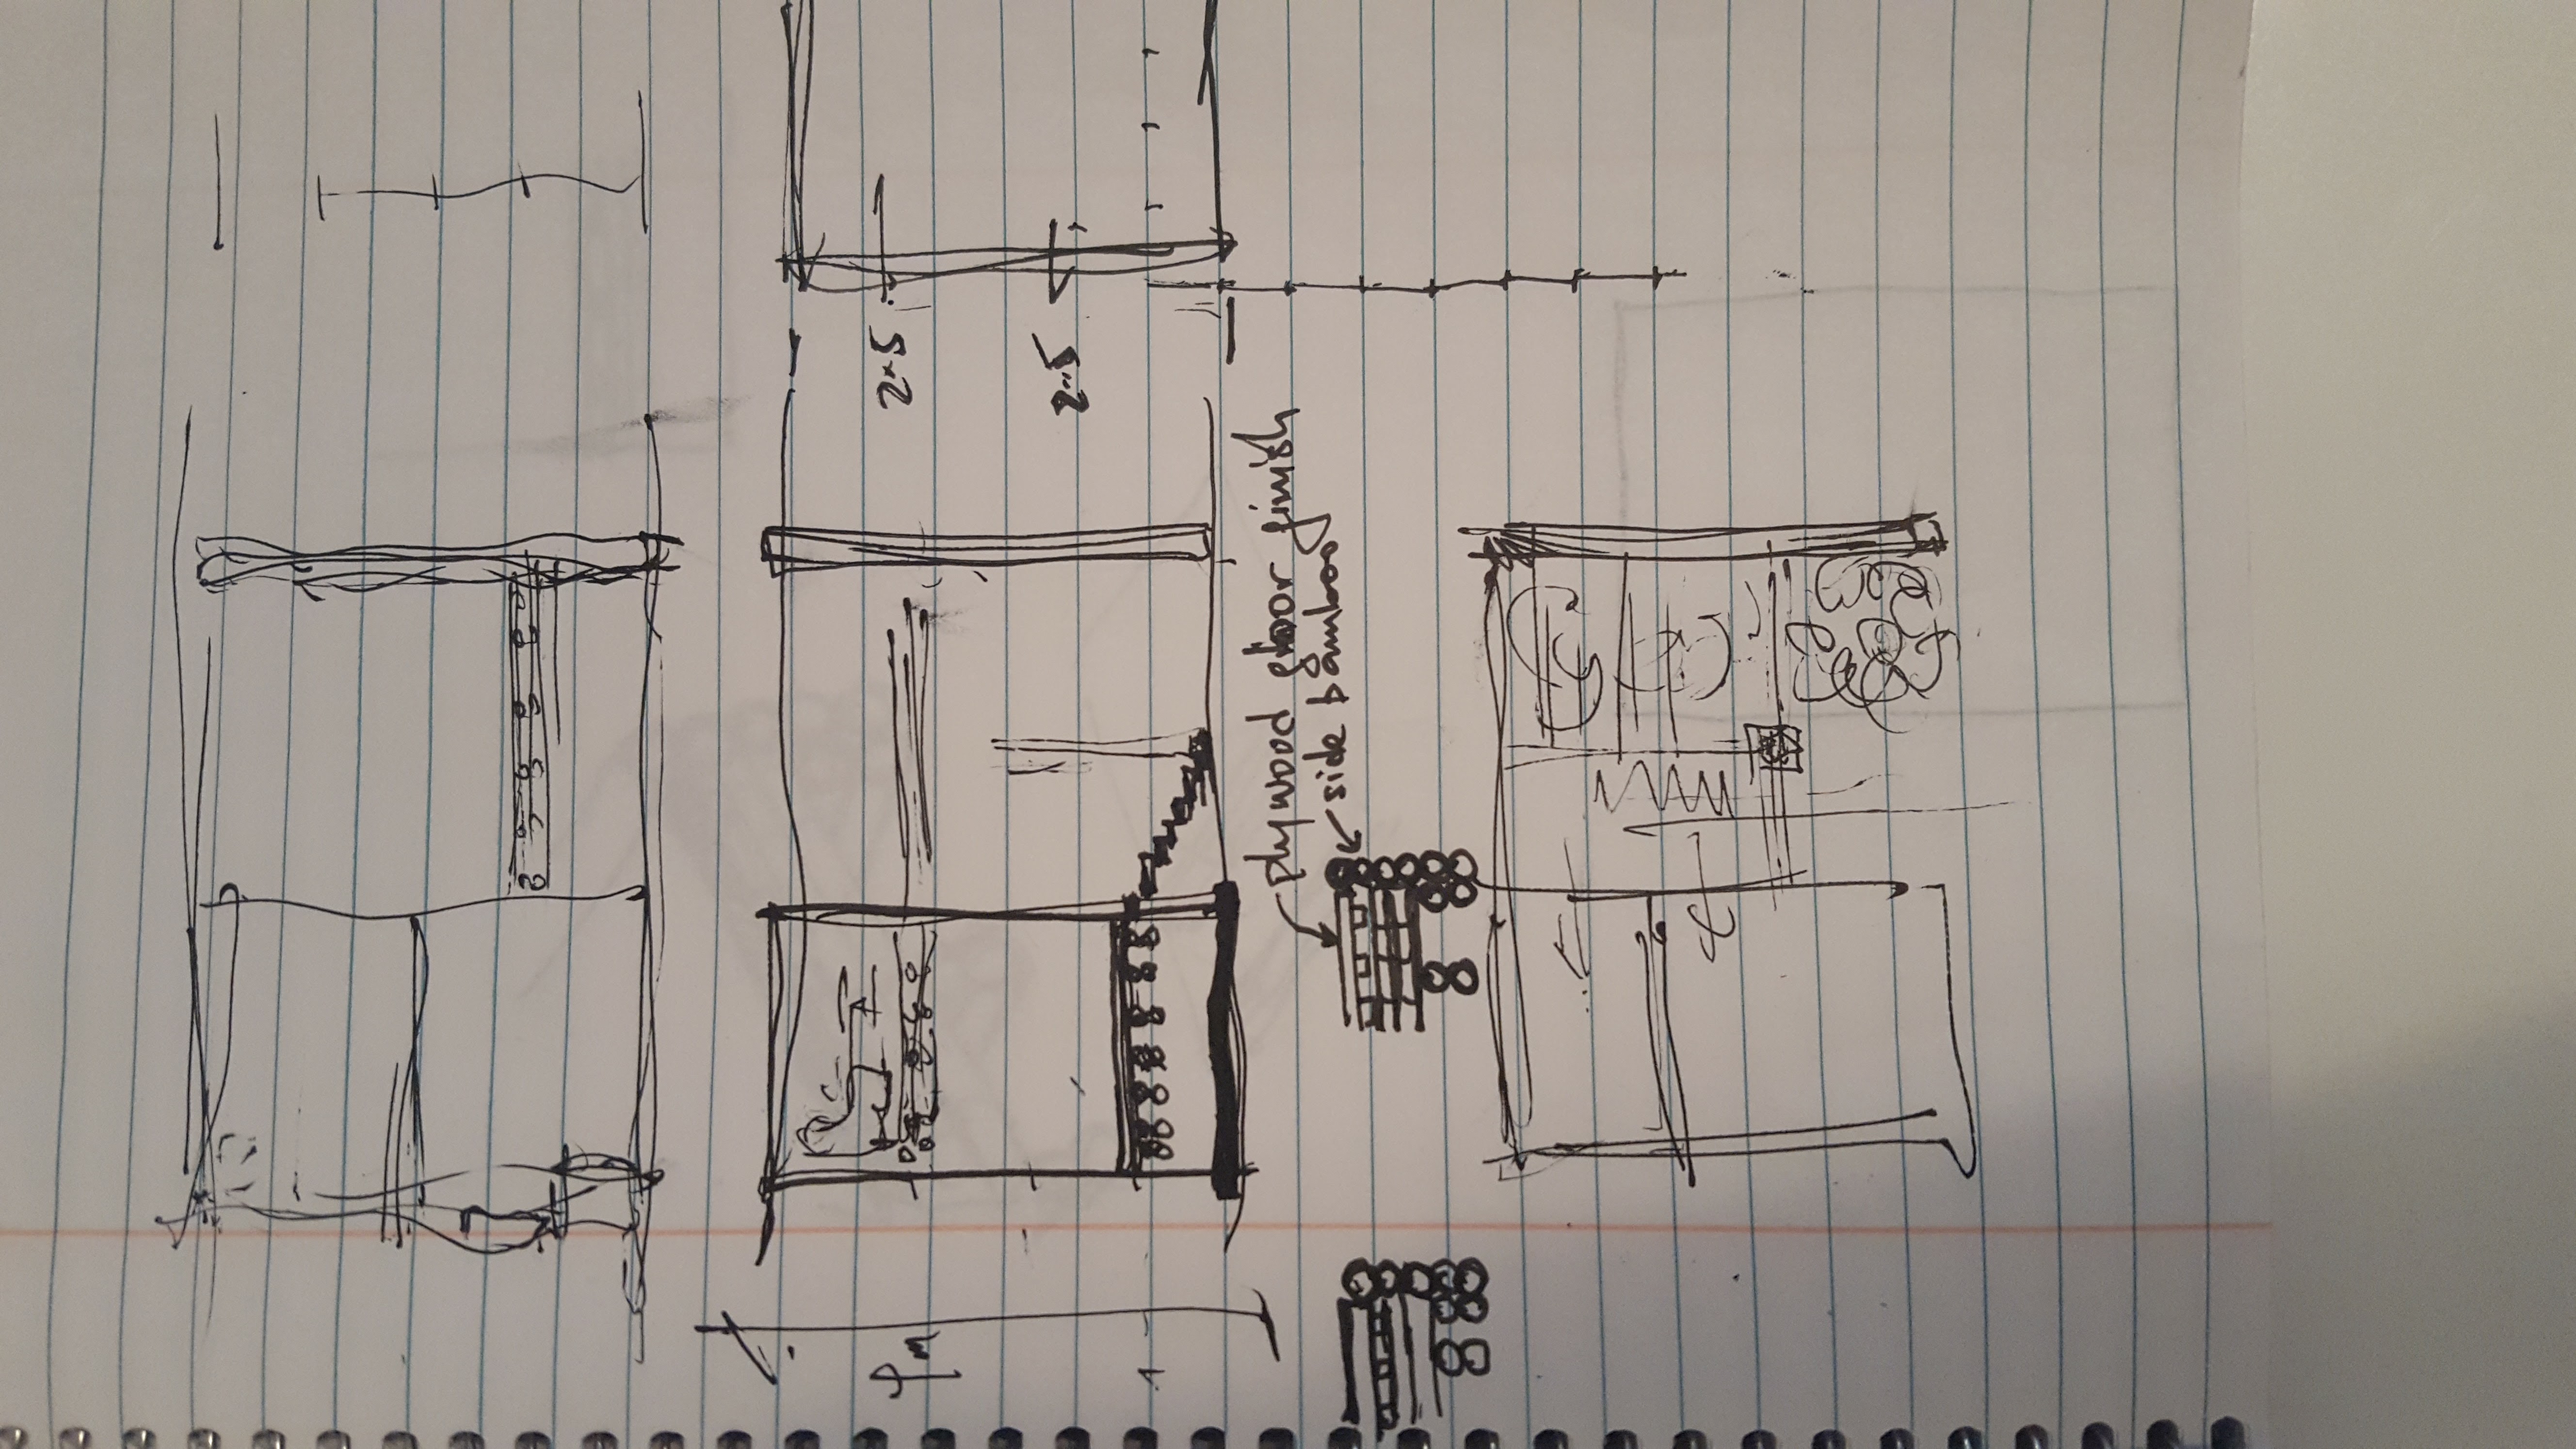 2.5
2.5
1
plywood floor finish
side bamboo